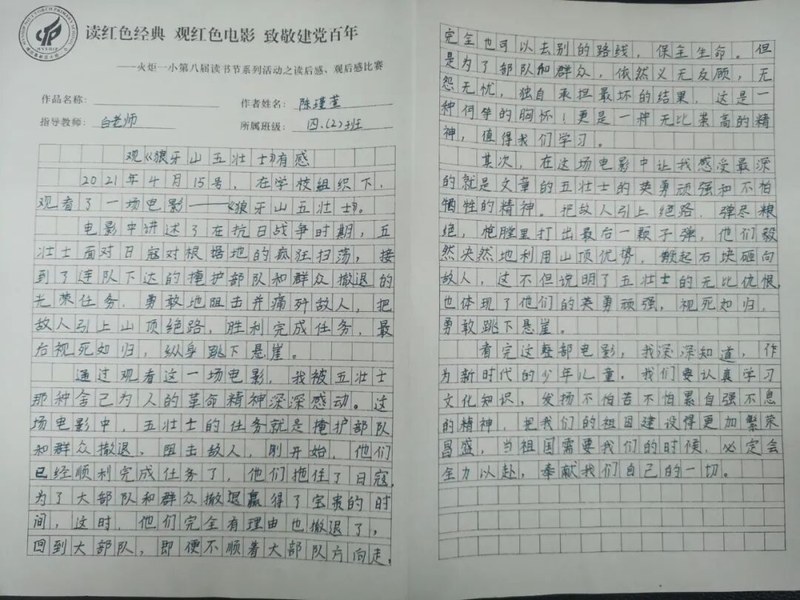 读红色经典 观红色电影 致敬建党百年
——火炬一小第八届读书节系列活动之读后感、观后感比赛
作品名称：
作者姓名：陈瑾萱
指导教师：白老师
所属班级：四.(2)班
观《狼牙山五壮士》有感
2021年4月15号，在学校组织下，
观看了一场电影——《狼牙山五壮士》。
电影中讲述了在抗日战争时期，五
壮士面对日寇对根据地的疯狂扫荡，接
到了连队下达的掩护部队和群众撤退的
光荣任务，勇敢地阻击并痛歼敌人，把
敌人引上山顶绝路，胜利完成任务，最
后视死如归，纵身跳下悬崖。
通过观看这一场电影，我被五壮士
那种舍己为人的革命精神深深感动。这
场电影中，五壮士的任务就是掩护部队
和群众撤退，阻击敌人，刚开始，他们
已经顺利完成任务了，他们拖住了日寇，
为了大部队和群众撤退赢得了宝贵的时
间，这时，他们完全有理由也撤退了，
回到大部队，即便不顺着大部队方向走，
完全也可以去别的路线，保全生命。但
是为了部队和群众，依然义无反顾，无
怨无忧，独自承担最坏的结果，这是一
种何等的胸怀！更是一种无比崇高的精
神，值得我们学习。
其次，在这场电影中让我感受最深
的就是文章的五壮士的英勇顽强和不怕
牺牲的精神。把敌人引上绝路，弹尽粮
绝，枪膛里打出最后一颗子弹，他们毅
然决然地利用山顶优势，掀起石块砸向
敌人，这不但说明了五壮士的无比仇恨，
也体现了他们的英勇顽强，视死如归，
勇敢跳下悬崖。
看完这整部电影，我深深知道，作
为新时代的少年儿童，我们要认真学习
文化知识，发扬不怕苦不怕累自强不息
的精神，把我们的祖国建设得更加繁荣
昌盛，当祖国需要我们的时候，必定会
全力以赴，奉献我们自己的一切。